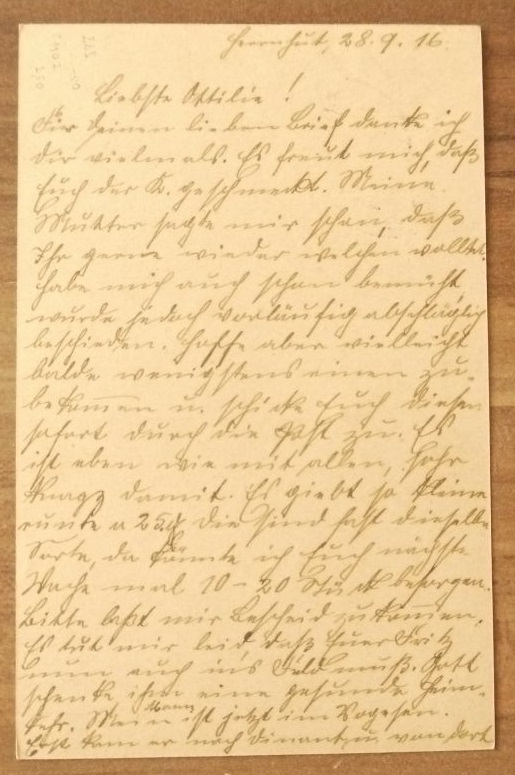 Herrnhut, 28.9.16.
Liebste Ottilie!
Für Deinen lieben Brief danke ich
Dir vielmals. Es freut mich, daß
Euch der K. geschmeckt. Meine
Mutter sagte mir schon, daß
Ihr gerne wieder welchen wolltet,
habe mich auch schon bemüht
wurde jedoch vorläufig abschläglich
beschieden. Hoffe aber vielleicht
balde wenigstens einen zu-
bekommen u. schicke Euch diesen
sofort durch die Post zu. Es
ist eben wie mit allen, sehr
knapp damit. Es giebt so kleine
runde a 25 die sind fast dieselbe
Sorte, da könnte ich Euch nächste
Woche mal 10-20 Stück besorgen.
Bitte laßt mir Bescheid zukommen,
Es tut mir leid daß Euer Fritz
nun auch ins Feld muß. Gott
schenke ihm eine gesunde Heim-
kehr. Mein Mann ist jetzt im Vogesen.
Erst kam er nach Dinant u. von dort